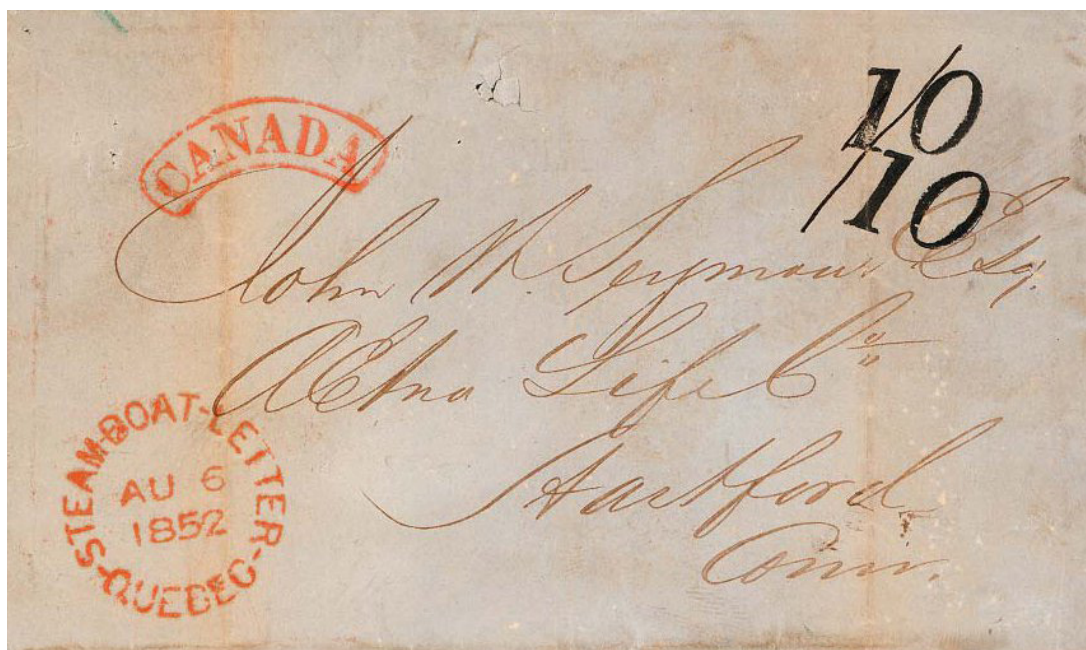 CANADA
10
10
John W. Seymour Esq.
AEtna Life Co
Hartford
Conn.
STEAMBOAT-LETTER-
AU 6
1852
-QUEBEC-